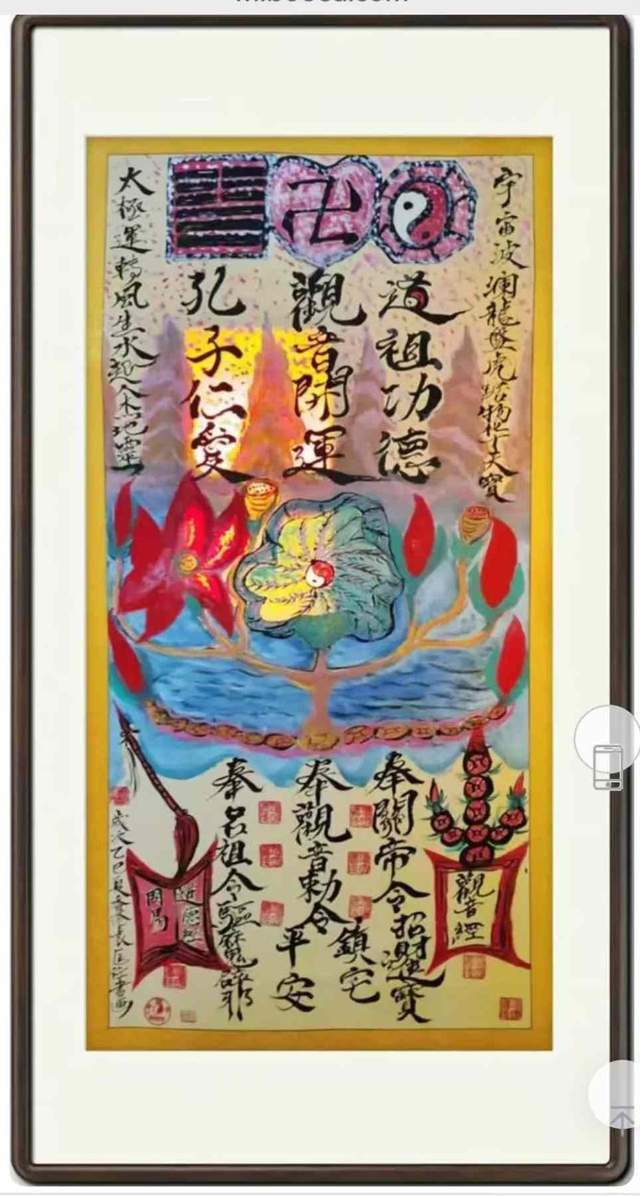 宇宙波瀾龍騰虎踞物華天寶
道祖功德
觀音開運
孔子仁愛
太極運轉風生水起人杰地靈
觀音經
奉關帝令招財進寶
奉觀音勅令鎮宅平安
奉呂祖令驅魔辟邪
道德經
周易
歲次乙巳夏書畫